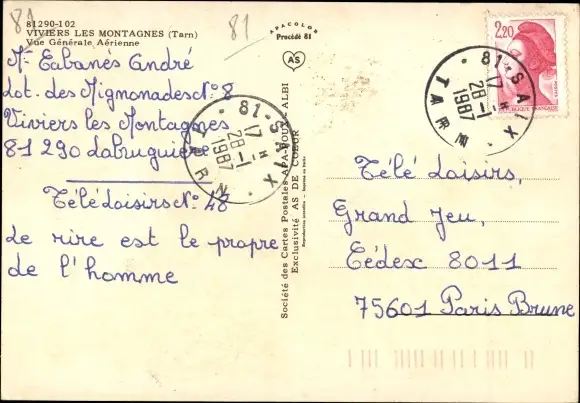 81
81
81290-102
VIVIERS LES MONTAGNES (Tarn)
Vue Générale Aérienne
APACOLOR
Procédé 81
AS
Mr Cabanès André
Lot. des Mignonades N° 8
Viviers les Montagnes
81 290 Labruguière
Télé Loisirs N° 48
Le rire est le propre
de l'homme
81 - SAIX
17 H
28 - 1
1987
TARN
Société des Cartes Postales APA-POUX - ALBI
Exclusivité AS DE COEUR
2,20
81 - SAIX
17 H
28 - 1
1987
TARN
Télé Loisirs,
Grand Jeu,
Cédex 8011
75601 Paris Brune